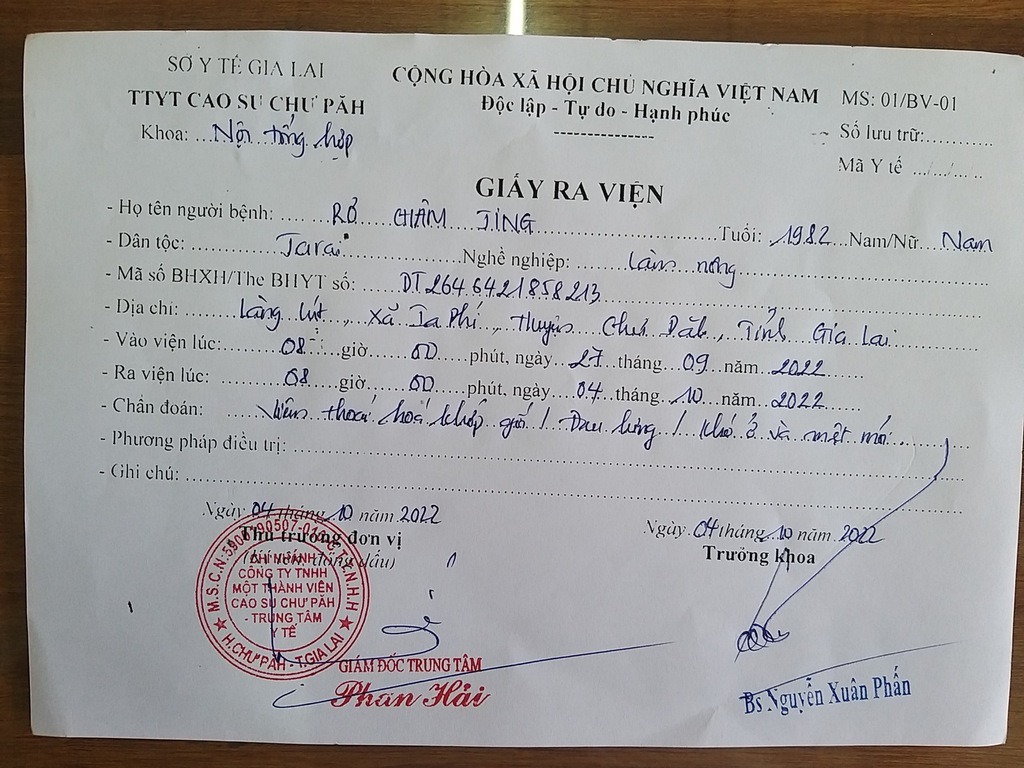 SỞ Y TẾ GIA LAI
TTYT CAO SU CHƯ PĂH
Khoa: Nội tổng hợp
CỘNG HÒA XÃ HỘI CHỦ NGHĨA VIỆT NAM
Độc lập - Tự do - Hạnh phúc
MS: 01/BV-01
Số lưu trữ:
Mã Y tế
GIẤY RA VIỆN
- Họ tên người bệnh: RƠ CHÂM JING Tuổi: 1982 Nam/Nữ Nam
- Dân tộc: Jarai Nghề nghiệp: Làm nông
- Mã số BHXH/The BHYT số: DT2646421858213
- Địa chỉ: Làng Lút, Xã Ia Phí, Huyện Chư Păh, Tỉnh Gia Lai
- Vào viện lúc: 08 giờ 00 phút, ngày 27 tháng 09 năm 2022
- Ra viện lúc: 08 giờ 00 phút, ngày 04 tháng 10 năm 2022
- Chẩn đoán: Viêm thoái hoá khớp gối / Đau lưng / Khó ở và mệt mỏi
- Phương pháp điều trị:
- Ghi chú:
Ngày 04 tháng 10 năm 2022
Thủ trưởng đơn vị
(ký tên, đóng dấu)
M.S.C.N:
CHI NHÁNH
CÔNG TY TNHH
MỘT THÀNH VIÊN
CAO SU CHƯ PĂH
- TRUNG TÂM
Y TẾ
H.CHƯ PĂH - T.GIA LAI
GIÁM ĐỐC TRUNG TÂM
Phan Hải
Ngày 04 tháng 10 năm 2022
Trưởng khoa
Bs Nguyễn Xuân Phấn